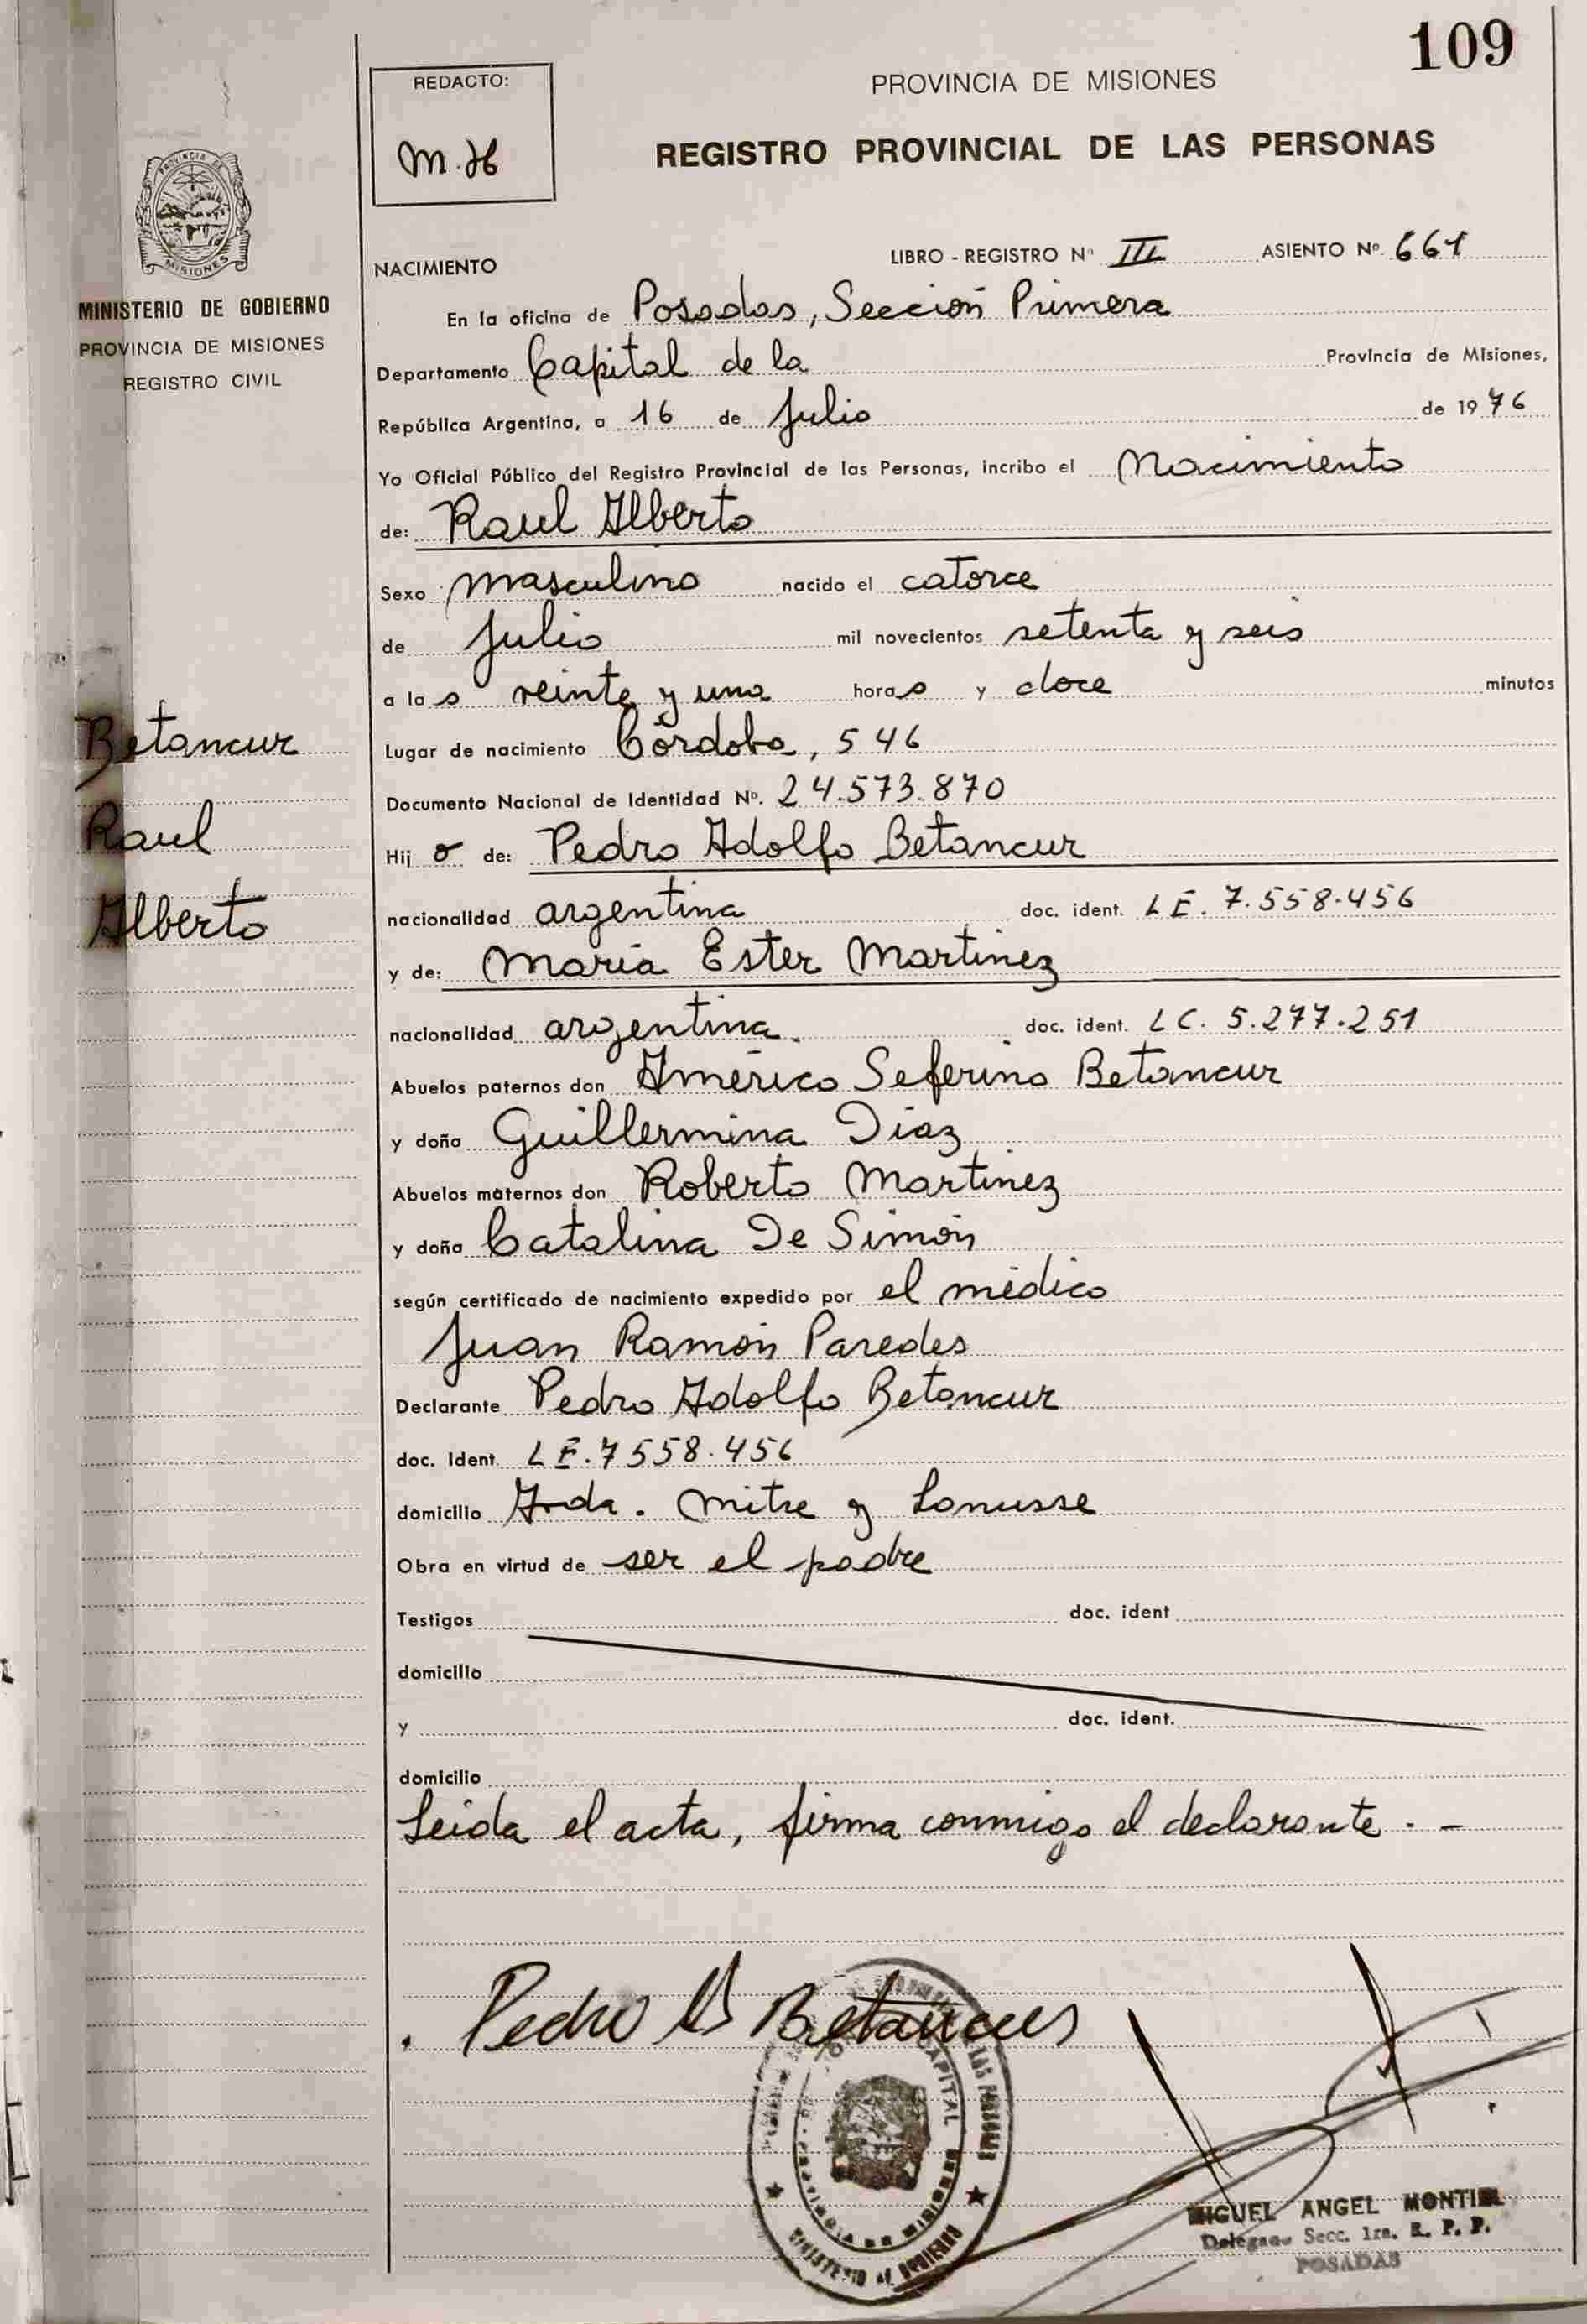 109
REDACTO:
M.H
PROVINCIA DE MISIONES
REGISTRO PROVINCIAL DE LAS PERSONAS
PROVINCIA DE
MISIONES
MINISTERIO DE GOBIERNO
PROVINCIA DE MISIONES
REGISTRO CIVIL
NACIMIENTO
LIBRO - REGISTRO Nº III ASIENTO Nº 661
En la oficina de Posadas, Sección Primera
Departamento Capital de la Provincia de Misiones,
República Argentina, a 16 de Julio de 1976
Yo Oficial Público del Registro Provincial de las Personas, incribo el Nacimiento
de: Raul Alberto
Sexo masculino nacido el catorce
de Julio mil novecientos setenta y seis
a las veinte y una horas y doce minutos
Betancur
Lugar de nacimiento Córdoba, 546
Documento Nacional de Identidad Nº. 24.573.870
Raul
Hijo de: Pedro Adolfo Betancur
Alberto
nacionalidad argentina doc. ident. LE. 7.558.456
y de: María Ester Martinez
nacionalidad argentina. doc. ident. LC. 5.277.251
Abuelos paternos don Américo Seferino Betancur
y doña Guillermina Díaz
Abuelos maternos don Roberto Martinez
y doña Catalina De Simón
según certificado de nacimiento expedido por el médico
Juan Ramón Paredes
Declarante Pedro Adolfo Betancur
doc. Ident. LE. 7558.456
domicilio Avda. Mitre y Lanusse
Obra en virtud de ser el padre
Testigos doc. ident
domicilio
y doc. ident.
domicilio
Leida el acta, firma conmigo el declarante. -
Pedro A Betancur
CAPITAL
LAS PERSONAS
PROVINCIA DE MISIONES
MINISTERIO DE GOBIERNO
MIGUEL ANGEL MONTIEL
Delegado Secc. 1ra. R. P. P.
POSADAS